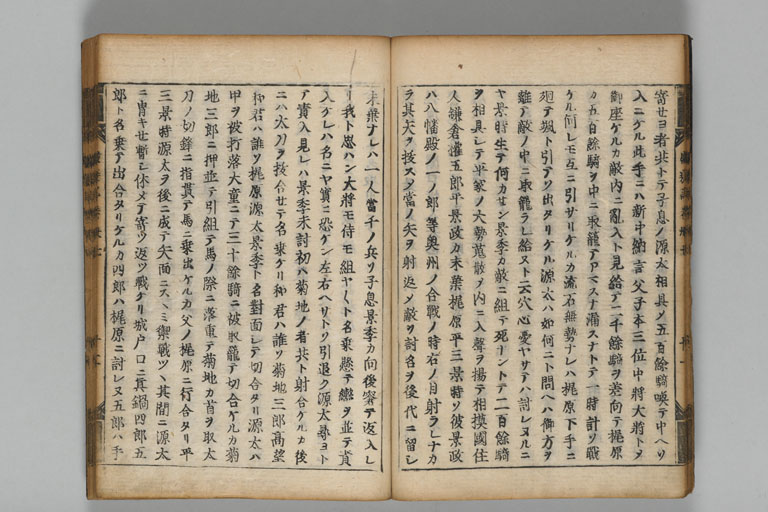 寄せヨ者共トテ子息ノ源太相具メ五百余騎喚テ中ヘソ
入ニケル此手ニハ新中納言父子本三位中将大将トメ
御座ケルカ敵内ニ乱入ト見給テ二千余騎ヲ差向テ梶原
カ五百余騎ヲ中ニ取籠テアマスナ漏スナトテ一時計ソ戦
ケル何レモ互ニ引サリケルカ流石無勢ナレハ梶原下手ニ
廻テ颯ト引テソ出タリケル源太ハ如何ニト問ヘハ御方ヲ
離テ敵ノ中ニ取籠ラレ給ヌト云穴心憂ヤサテハ討レヌルニ
ヤ景時生テ何カセン景季カ敵ニ組テ死ナントテ二百余騎
ヲ相具シテ平家ノ大勢蒐散メ内ニ入声ヲ揚テ相模国住
人鎌倉権五郎平景政カ末葉梶原平三景時ソ彼景政
ハ八幡殿ノ一ノ郎等奥州ノ合戦ノ時右ノ目射ラレナカ
ラ其矢ヲ抜スメ當ノ矢ヲ射返メ敵ヲ討名ヲ後代ニ留シ
末葉ナレハ一人當千ノ兵ソ子息景季カ向後察テ返入レ
我ト思ハン大将モ侍モ組ヤヽト名乗懸テ轡ヲ並テ責
入ケレハ名ニヤ實ニ恐ケン左右ヘサトソ引退ク源太尋ヨト
テ責入見レハ景季未討初ハ菊地ノ者共ト射合ケルカ後
ニハ太刀ヲ抜合せテ名乗ケリ和君ハ誰ソ菊地三郎高望
和君ハ誰ソ梶原源太景季ト名對面シテ切合タリ源太ハ
甲ヲ被打落大童ニテ三十余騎ニ被取籠テ切合ケルカ菊
地三郎ニ押並テ引組テ馬ノ際ニ落重テ菊地カ首ヲ取太
刀ノ切鋒ニ指貫テ馬ニ乗出ケルカ父ノ梶原ニ行合タリ平
三景時源太ヲ後ニ成テ矢面ニスヽミ禦戦ツヽ其間ニ源太
ニ冑キせ暫シ休メテ寄ツ返ツ戦ケリ城戸口ニ真鍋四郎五
郎ト名乗テ出合タリケルカ四郎ハ梶原ニ討レヌ五郎ハ手